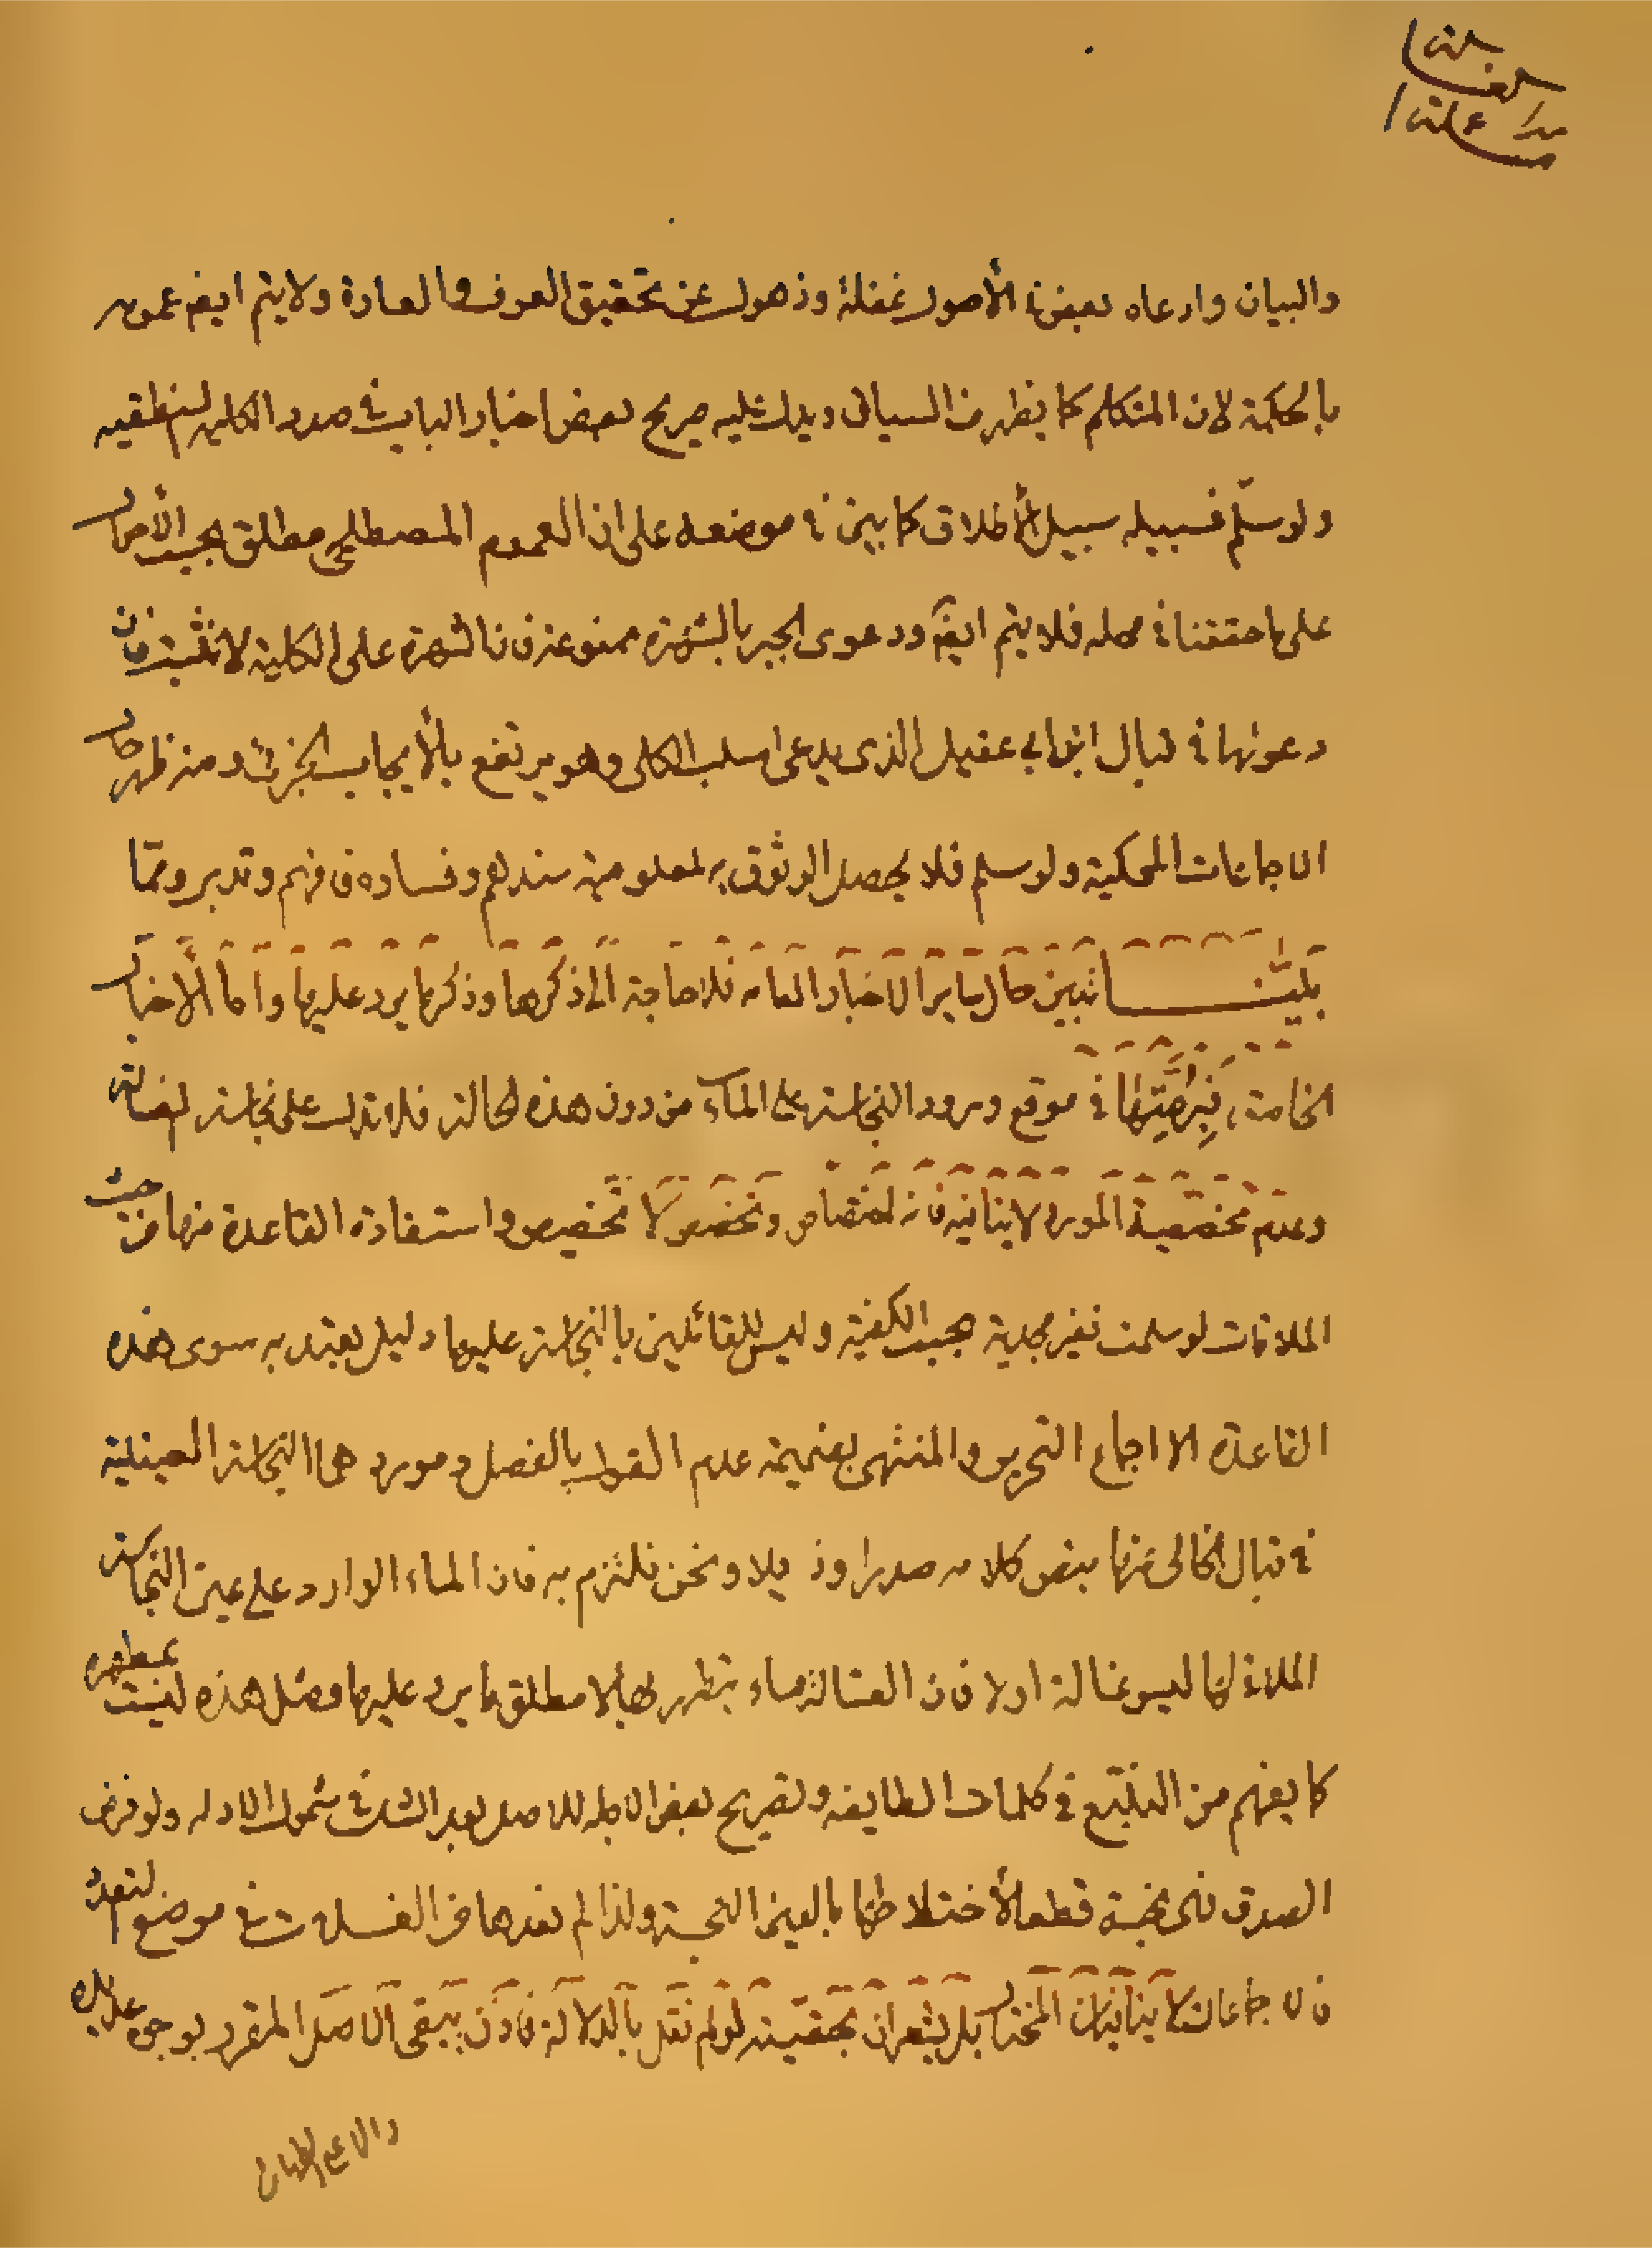 والبيان وادعاه بعض في الأصول غفلة وذهول عن تحقيق العرف والعادة ولا يتم ايضا عمومه
بالحكمة لان المتكلم كما يظهر من السياق ويدل عليه صريح بعض اخبار الباب في صدد الكلية المنطقيه
ولو سلّم فسبيله سبيل الأطلاق كما بين في موضعه على ان العموم المصطلحي مطلق بحسب الأحوال
على ما حققنا في محله فلا يتم ايضاً ودعوى الجبر بالشهرة ممنوعة فان الشهرة على الكلية لا تثبت فان
دعوتها في قبال ابن ابي عقيل الذى يدعى سلب الكلى وهو يرتفع بالأيجاب الجزئى ومنه ظهر حال
الاجماعات المحكية ولو سلم فلا يحصل الوثوق به لمعلومية سندهم وفساده فافهم وتدبر ومما
بيّنا تبين حال ساير الاخبار العامه فلا حاجة الى ذكرها وذكر ما يرد عليها واما الاخبار
الخاصة فبرمّتها في موقع ورود النجاسة على الماء من دون هذه الحالة فلا تدل على نجاسة الغسالة
وعدم مخصصية المورد لا ينافيه فانه اختصاص وتخصص لا تخصيص واستفادة القاعدة منها من حيث
الملاقات لو سلمت فغير مجدية بحسب الكيفية وليس للقائلين بالنجاسة عليها دليل يعتد به سوى هذه
القاعدة الا اجماع التحرير والمنتهى بضميمة عدم القول بالفصل ومورد هما النجاسة العينية
في قبال الخالى عنها بنص كلامه صدرا وذيلا ونحن نلتزم به فان الماء الوارد على عين النجاسة
الملاقي لها ليس غسالة اولا فان الغسالة ماء يتطهر بها لا مطلق ما يرد عليها ومثل هذه ليست بمطهرة
كما يفهم من التتبع في كلمات الطايفه وتصريح بعض الاجله للاصل بعد الشك في شمول الادله ولو فرض
الصدق فهى نجسة قطعا لأختلاطها بالعين النجسة ولذا لم نعدها من الغسلات في موضع التعدد
فالاجماعات لا ينافيان المختار بل يشعران بحقيته لو لم نقل بالدلالة فاذن يبقى الاصل المقرر بوجوه عديده